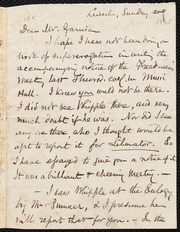 Leicester, Sunday
Dear Mr. Garrison
I hope I have not been doing a
work of supererogation in writing the
accompanying notice of the Freedmen's
meeting, last Thursd. evg. in Music
Hall. I knew you could not be there.
I did not see Whipple here, and very
much doubt if he was. Nor did I see
any one there who I thought would be
apt to report it for Liberator. So
I have essayed to give you a notice of it.
It was a brilliant & cheering meeting.—
— I saw Whipple at the Eulogy
by Mr. Sumner, & I presume he
will report that for you. — In the